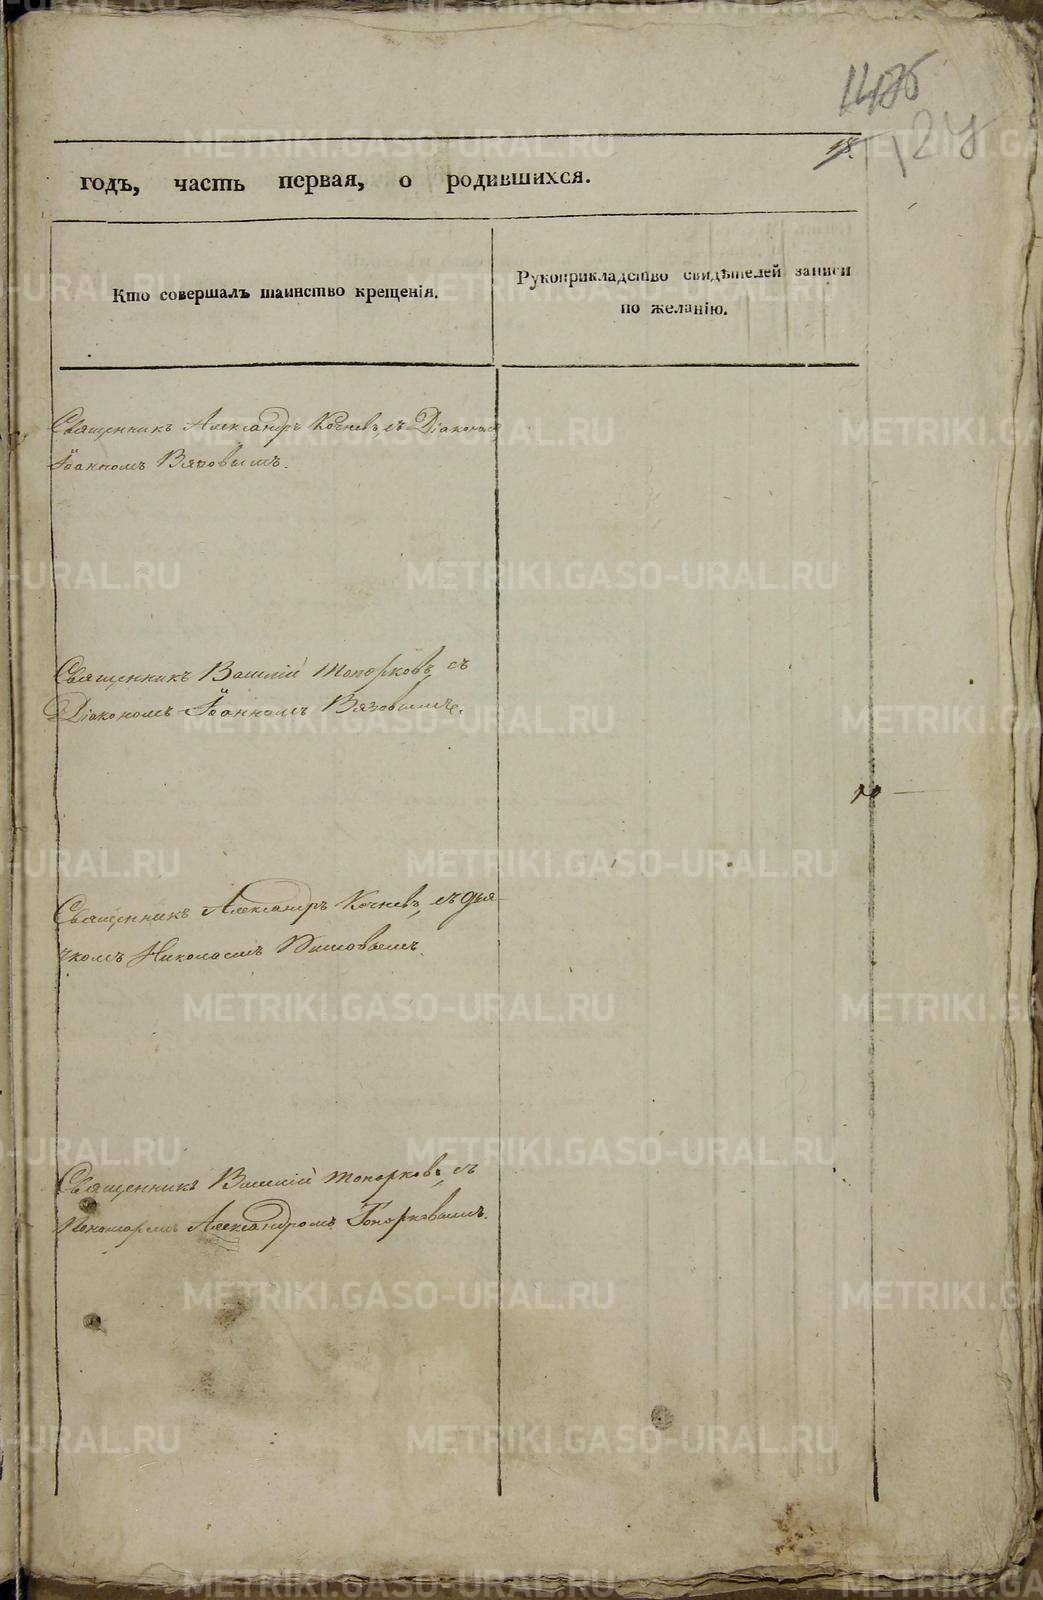 18.
124
годъ, часть первая, о родившихся.
Кто совершалъ таинство крещенія.
Рукоприкладство свидѣтелей записи
по желанію.
Священникъ Александръ Кочневъ, съ Діакономъ
Іоанномъ Вязовымъ.
Священникъ Василій Топорковъ, съ
Діакономъ Іоанномъ Вязовымъ.
Священникъ Александръ Кочневъ, съ дья-
чкомъ Николаемъ
Священникъ Василій Топорковъ, съ
Пономаремъ Александромъ Топорковымъ.
METRIKI.GASO-URAL.RU